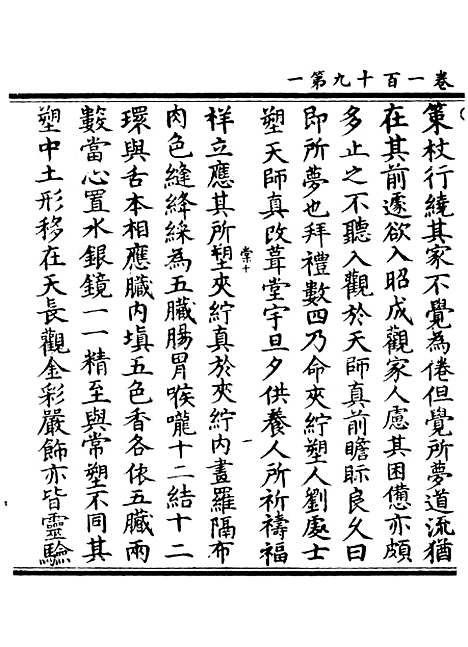 卷一百一十九第一
策杖行繞其家不覺為倦但覺所夢道流猶
在其前遽欲入昭成觀家人慮其困憊亦頗
多止之不聽入觀於天師真前瞻眎良久曰
即所夢也拜禮數四乃命夾紵塑人劉處士
塑天師真改葺堂宇旦夕供養人所祈禱福
棠十
一
祥立應其所塑夾紵真於夾紵內畫羅隔布
肉色縫絳綵為五臟腸胃喉嚨十二結十二
環與舌本相應臟內填五色香各依五臟兩
數當心置水銀鏡一一精至與常塑不同其
塑中土形移在天長觀金彩嚴飾亦皆靈驗